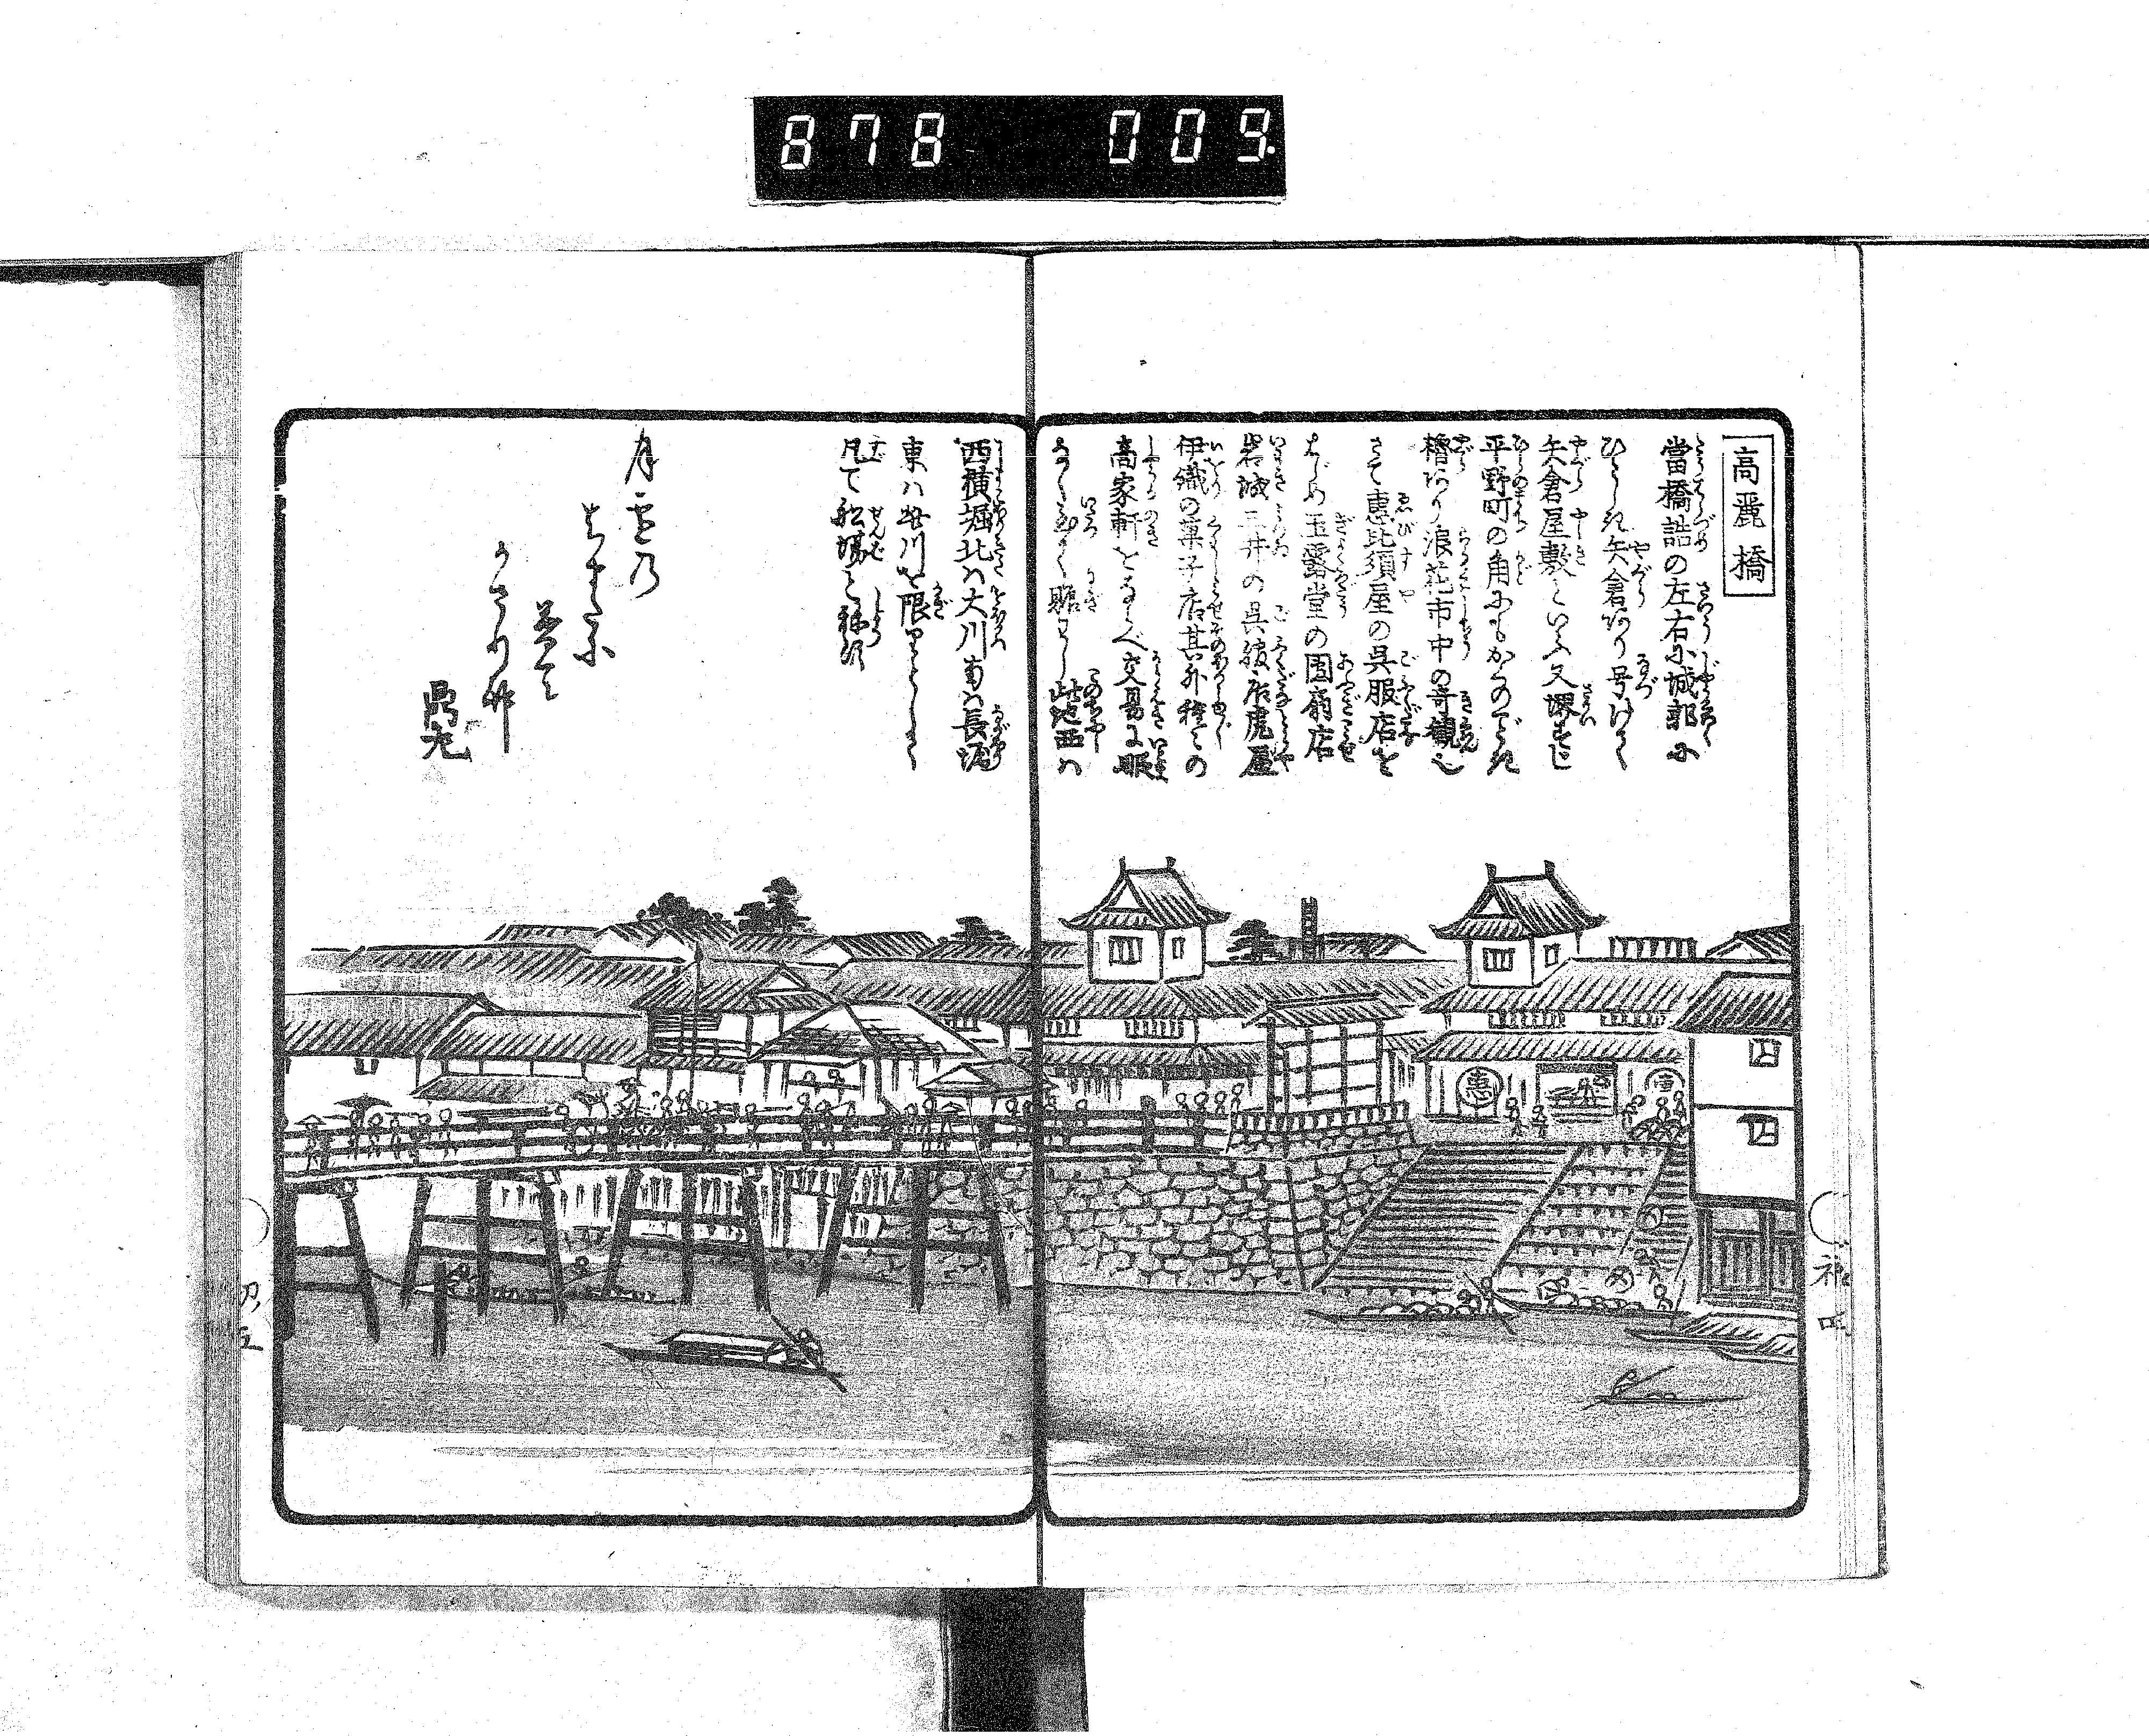 878 009
高麗橋
當橋詰の左右に城郭に
ひとしき矢倉あり号けて
矢倉屋敷といふ又堺すじ
平野町の角にもかくのごとき
櫓あり浪花市中の奇観也
さて恵比須屋の呉服店を
はじめ玉露堂の団扇店
岩城三井の呉服店虎屋
伊織の菓子店其外種々の
高家軒をならべ交易に暇
なく賑はし此地西は
西横堀北は大川南は長堀
東は此川を限りとして
凡て船場と称す
月雪の
はしに
かさの
鼎
恵